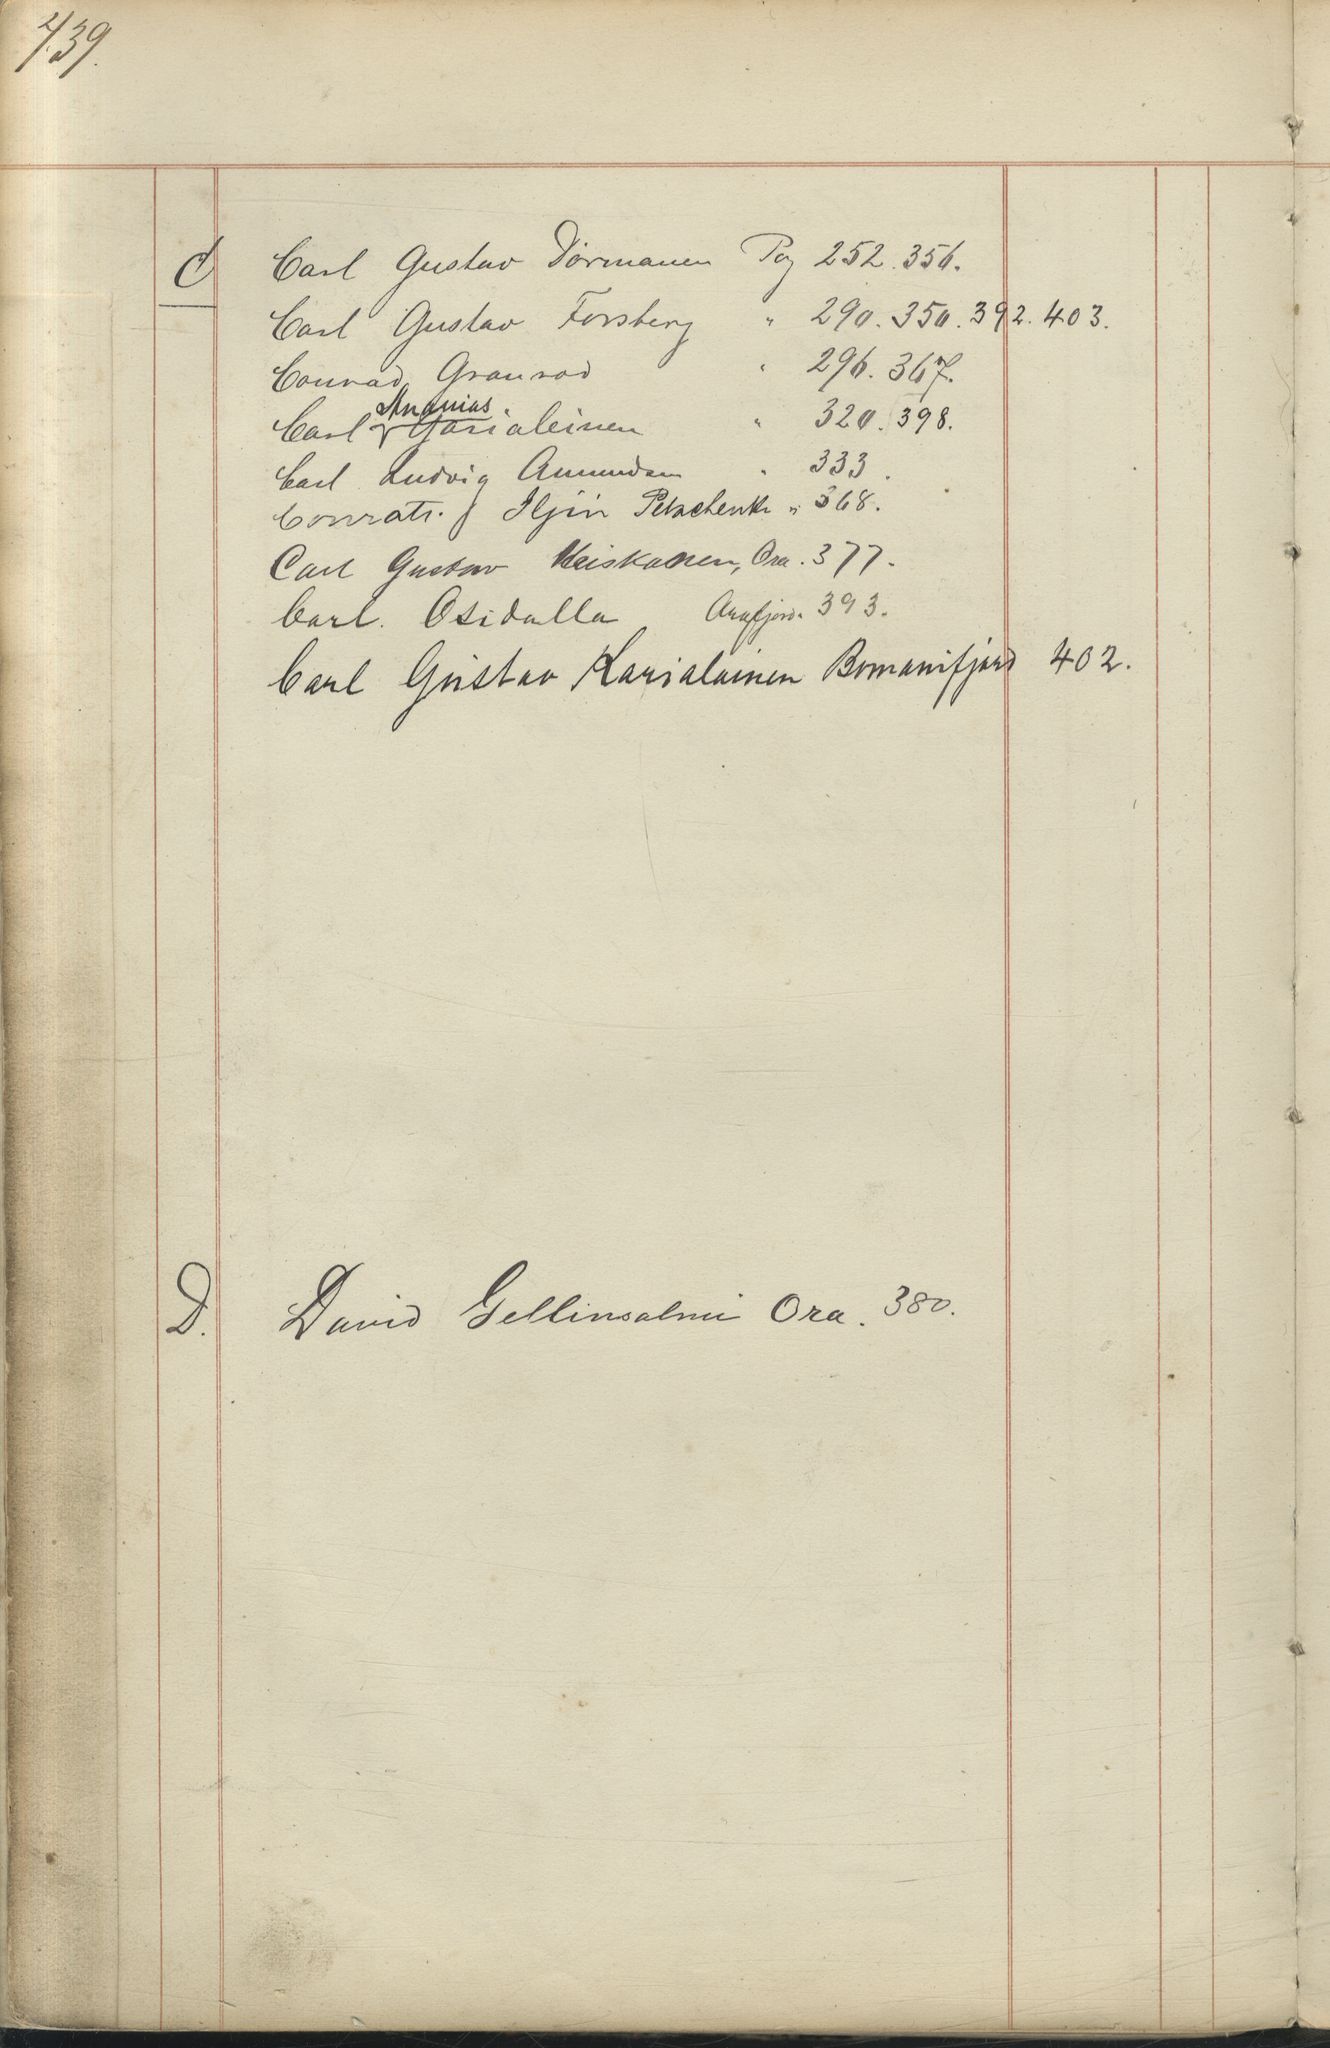 439.
C Carl Gustav Törmanen Pag 252. 356.
Carl Gustav Forsberg " 290. 350. 392. 403.
Conrad Granrod " 296. 367.
Ananias
Carl Garialeinen " 320. 398.
Carl Ludvig Amundsen " 333.
Conrati. Iljin " 368.
Carl Gustav Heiskanen, Ora. 377.
Carl. Osidalla Arafjord. 393.
Carl Gustav Karialainen Bomanifjord 402.
D. David Gellinsalmi Ora. 380.